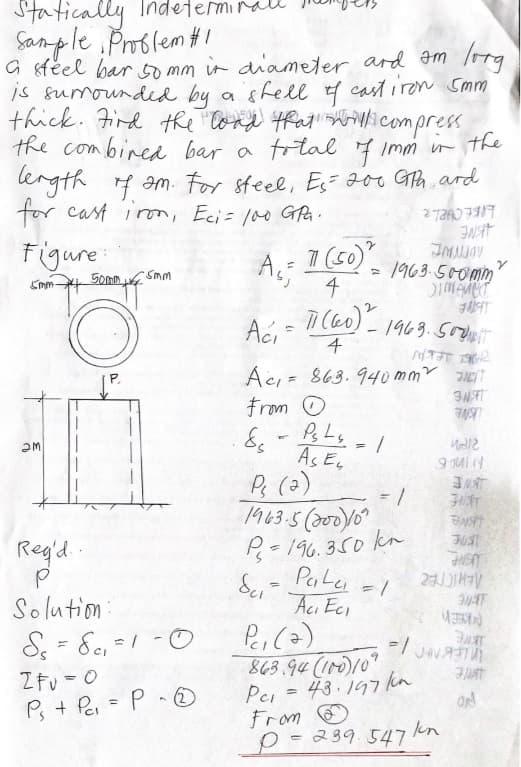 Statically Indeterminate Members
Sample Problem #1
A steel bar 50 mm in diameter and 2m long
is surrounded by a shell of cast iron 5mm
thick. Find the load that will compress
the combined bar a total of 1mm in the
length of 2m. For steel, Es = 200 GPa, and
for cast iron, Eci = 100 GPa.
Figure:
5mm 50mm 5mm
P.
2m
Req'd.
P
Solution:
δs = δci = 1 - ①
ΣFv = 0
Ps + Pci = P - ②
As = π(50)² / 4 = 1963.500mm²
Aci = π(60)² / 4 - 1963.500
Aci = 863.940mm²
From ①
δs = PsLs / AsEs = 1
Ps (2) / 1963.5(200)10⁹ = 1
Ps = 196.350 kn
δci = PciLci / AciEci = 1
Pci(2) / 863.94(100)10⁹ = 1
Pci = 43.197 kn
From ②
P = 239.547 kn